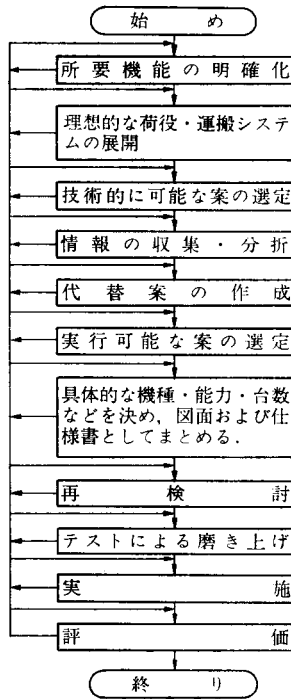 始め
所要機能の明確化
理想的な荷役・運搬システ
ムの展開
技術的に可能な案の選定
情報の収集・分折
代替案の作成
実行可能な案の選定
具体的な機種・能力・台数
などを決め，図面および仕
様書としてまとめる．
再検討
テストによる磨き上げ
実施
評価
終り